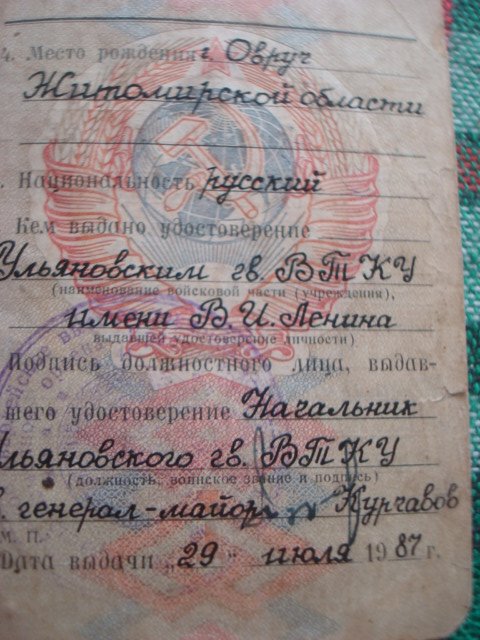 4. Место рождения г. Овруч
Житомирской области
. Национальность русский
Кем выдано удостоверение
Ульяновским гв. ВТКУ
(наименование войсковой части (учреждения),
имени В.И. Ленина
выдавшей удостоверение личности)
Подпись должностного лица, выдав-
шего удостоверение Начальник
льяновского гв. ВТКУ
(должность, воинское звание и подпись)
. генерал-майор Курчавов
М. П.
Дата выдачи „29" июля 1987 г.